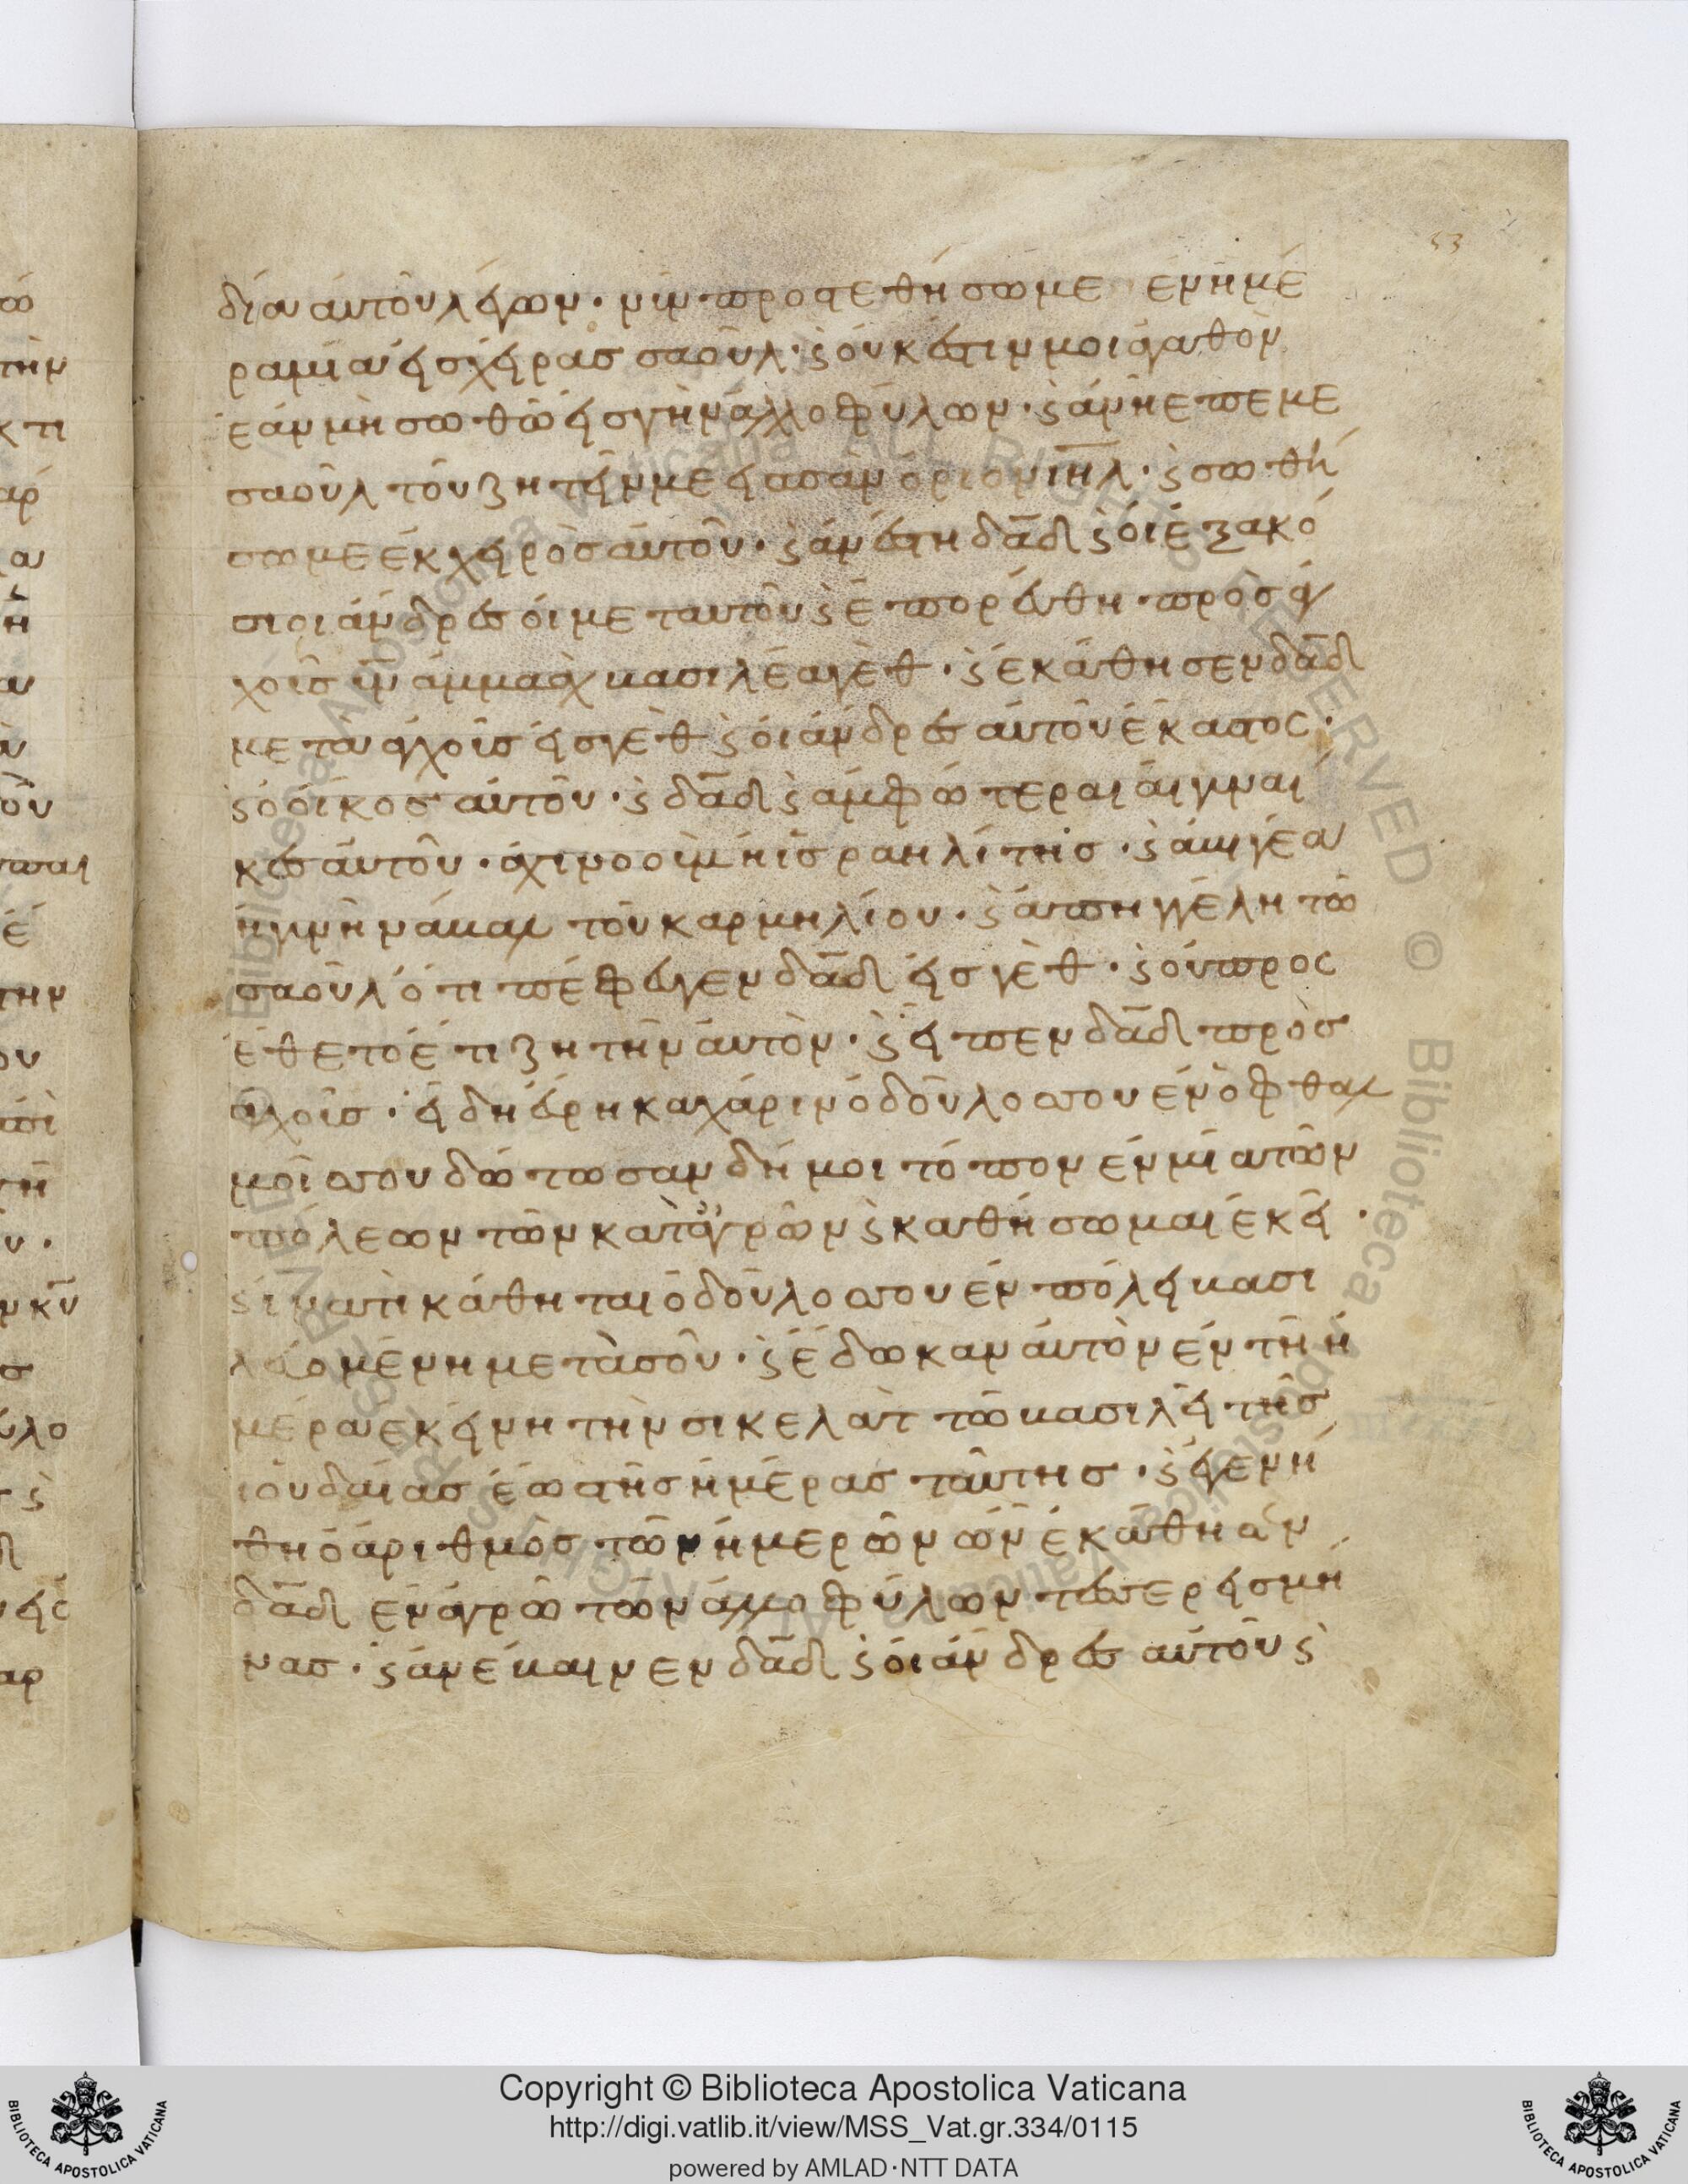 53
δίαν αὐτοῦ λέγων · νῦν προστεθήσωμε ἐν ἡμέ
ρα μιᾶ εἰς χεῖρας σαοὺλ · ϛ οὐκ ἔστιν μοι ἀγαθὸν
ἐὰν μὴ σωθῶ εἰς γῆν ἀλλοφύλων · ϛ ἀνῆ ἐπ ἐμὲ
σαοὺλ τοῦ ζητεῖν με εἰς πᾶν ὅριον ιη̅λ · ϛ σωθή
σωμε ἐκ χειρὸς αὐτοῦ · ϛ ἀνέστη δα̅δ ϛ οἱ ἑξακό
σιοι ἄνδρες οἱ μετ αὐτοῦ ϛ ἐπορεύθη πρὸς ἀγ
χοῦς υι̅ν ἀμμαὰχ βασιλέα γὲθ · ϛ ἐκάθησεν δα̅δ
μετὰ ἀγχοῦς εἰς γὲθ ϛ οἱ ἄνδρες αὐτοῦ ἕκαστος ·
ϛ ὁ οἶκος αὐτοῦ · ϛ δα̅δ ϛ ἀμφότεραι αἱ γυναῖ
κες αὐτοῦ · ἀχινοοὶμ ἡ ἰσραηλίτης · ϛ ἀβιγέα
ἡ γυνὴ νάβαλ τοῦ καρμηλίου · ϛ ἀπηγγέλη τῶ
σαοὺλ ὅτι πέφευγεν δα̅δ εἰς γὲθ · ϛ οὐ προς
έθετο ἔτι ζητῆν αὐτὸν · ϛ εἶπεν δα̅δ πρὸς
ἀγχοῦς · εἰ δὴ εὕρηκα χάριν ὁ δοῦλος σου ἐν ὀφθαλ
μοῖς σου δότωσαν δή μοι τόπον ἐν μιᾶ τῶν
πόλεων τῶν κατ ἀγρῶν ϛ καθήσωμαι ἐκεῖ ·
ϛ ἱνατὶ κάθηται ὁ δοῦλος σου ἐν πόλει βασι
λευομένη μετὰ σοῦ · ϛ ἔδωκαν αὐτὸν ἐν τῆ ἡ
μέρα ἐκείνη τὴν σικελὰτ τῶ βασιλεῖ τῆς
ἰουδαίας ἕως τῆς ἡμέρας ταύτης · ϛ ἐγενή
θη ὁ ἀριθμὸς τῶν ἡμερῶν ὧν ἐκάθησεν
δα̅δ ἐν ἀγρῶ τῶν ἀλλοφύλων τέσσερεις μῆ
νας · ϛ ἀνέβαινεν δα̅δ ϛ οἱ ἄνδρες αὐτοῦ ϛ
Copyright © Biblioteca Apostolica Vaticana
http://digi.vatlib.it/view/MSS_Vat.gr.334/0115
powered by AMLAD·NTT DATA
BIBLIOTECA APOSTOLICA VATICANA
BIBLIOTECA APOSTOLICA VATICANA